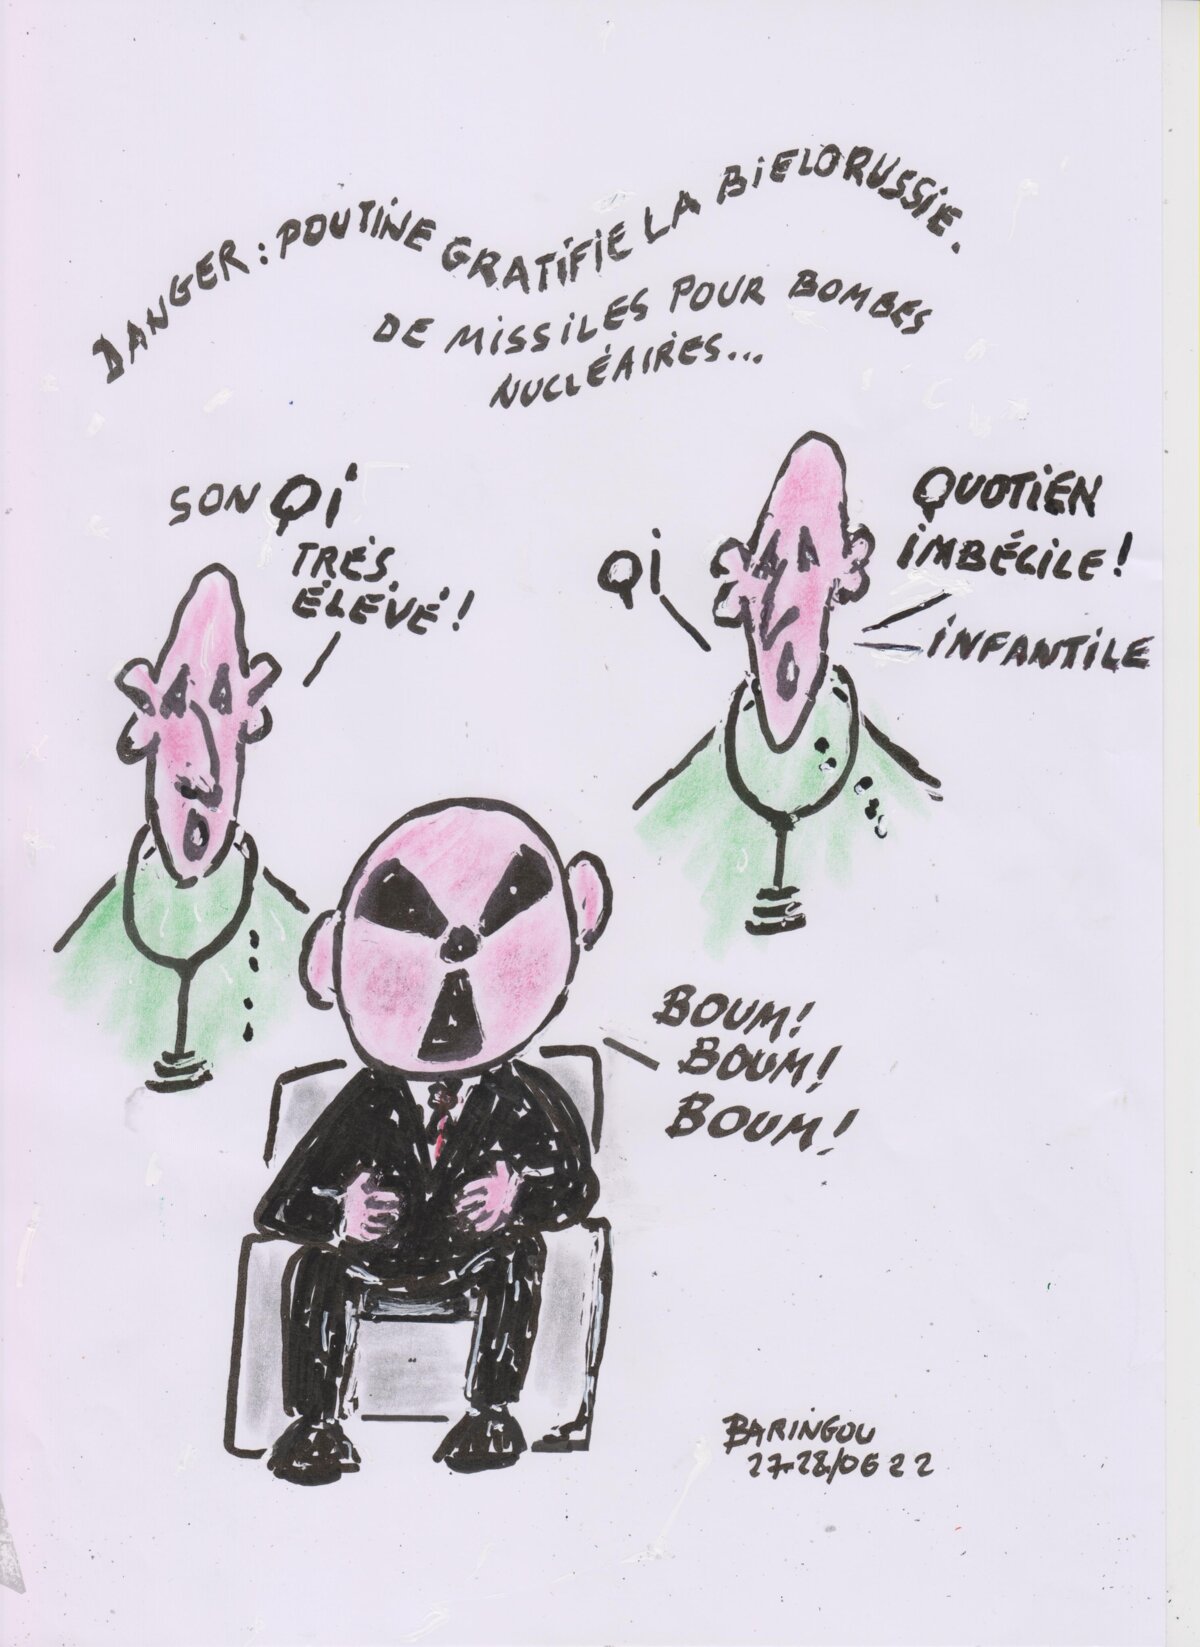 DANGER : POUTINE GRATIFIE LA BIELORUSSIE.
DE MISSILES POUR BOMBES
NUCLÉAIRES...
SON QI
TRÉS
ÉLEVÉ !
QI
QUOTIEN
IMBÉCILE !
INFANTILE
BOUM !
BOUM !
BOUM !
BARINGOU
27-28/06 22